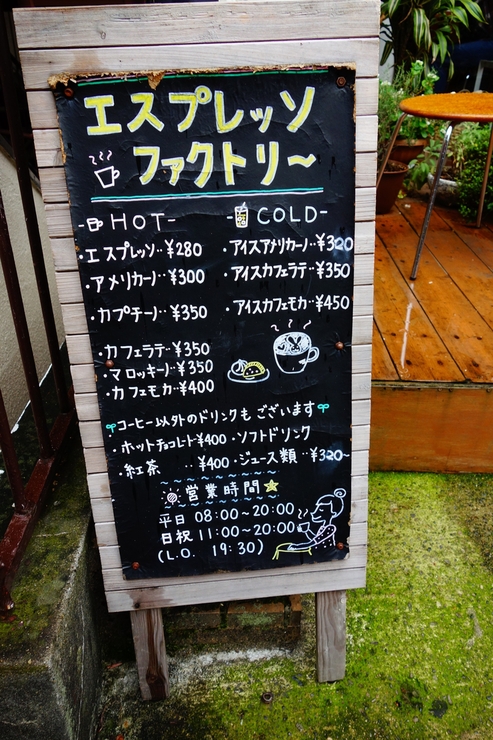 エスプレッソ
ファクトリー〜
-HOT-
・エスプレッソ‥¥280
・アメリカーノ‥¥300
・カプチーノ‥¥350
・カフェラテ‥¥350
・マロッキーノ‥¥350
・カフェモカ‥¥400
COLD-
・アイスアメリカーノ‥¥320
・アイスカフェラテ‥¥350
・アイスカフェモカ‥¥450
コーヒー以外のドリンクもございます
・ホットチョコレート¥400・ソフトドリンク
・紅茶 ‥¥400・ジュース類‥¥320~
営業時間
平日 08:00~20:00
日祝 11:00~20:00
(L.O. 19:30)